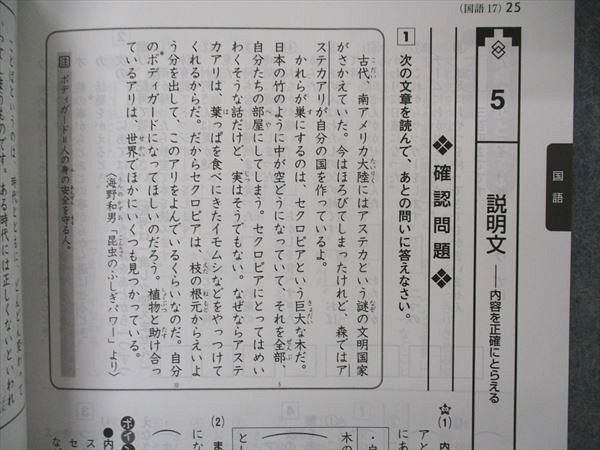 (国語 17) 25
国語
5
説明文──内容を正確にとらえる
❖確認問題❖
1 次の文章を読んで、あとの問いに答えなさい。
古代、南アメリカ大陸にはアステカという謎の文明国家
がさかえていた。今はほろびてしまったけれど、森ではア
ステカアリが自分の国を作っているよ。
かれらが巣にするのは、セクロピアという巨大な木だ。
日本の竹のように中が空どうになっていて、それを全部、
自分たちの部屋にしてしまう。セクロピアにとってはめい
わくそうな話だけど、実はそうでもない。なぜならアステ
カアリは、葉っぱを食べにきたイモムシなどをやっつけて
くれるからだ。だからセクロピアは、枝の根元からえいよ
う分を出して、このアリをよんでいるくらいなのだ。自分
のボディガードになってほしいのだろう。植物と助け合っ
ているアリは、世界でほかにいくつも見つかっている。
〈海野和男「昆虫のふしぎパワー」より〉
注 ボディガード＝人の身の安全を守る人。
5
10
☆(1)
(2) ま
にな
ポイン
●内